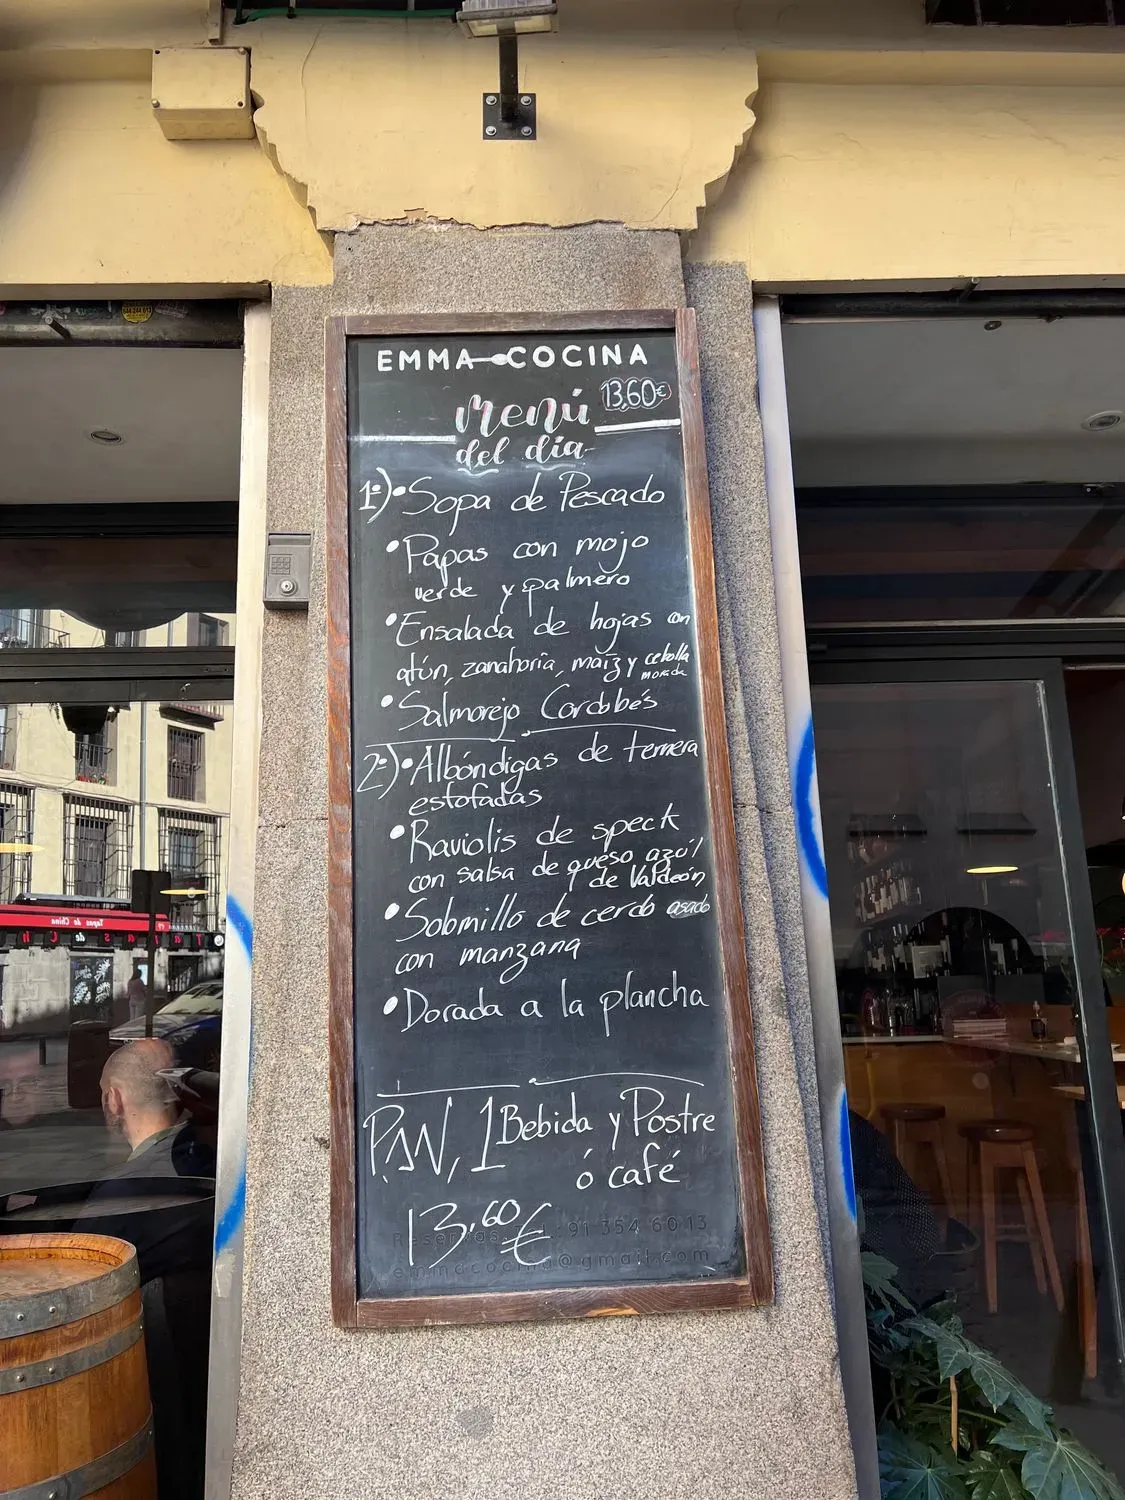 EMMA COCINA
menú 13,60€
del día
1º) • Sopa de Pescado
• Papas con mojo
verde y palmero
• Ensalada de hojas con
atún, zanahoria, maíz y cebolla
morada
• Salmorejo Cordobés
2º) • Albóndigas de ternera
estofadas
• Raviolis de speck
con salsa de queso azúl
de Valdeón
• Solomillo de cerdo asado
con manzana
• Dorada a la plancha
PAN, 1 Bebida y Postre
ó café
13,60 €
Reservas 91 354 60 13
emmacocina@gmail.com
Tapas de China